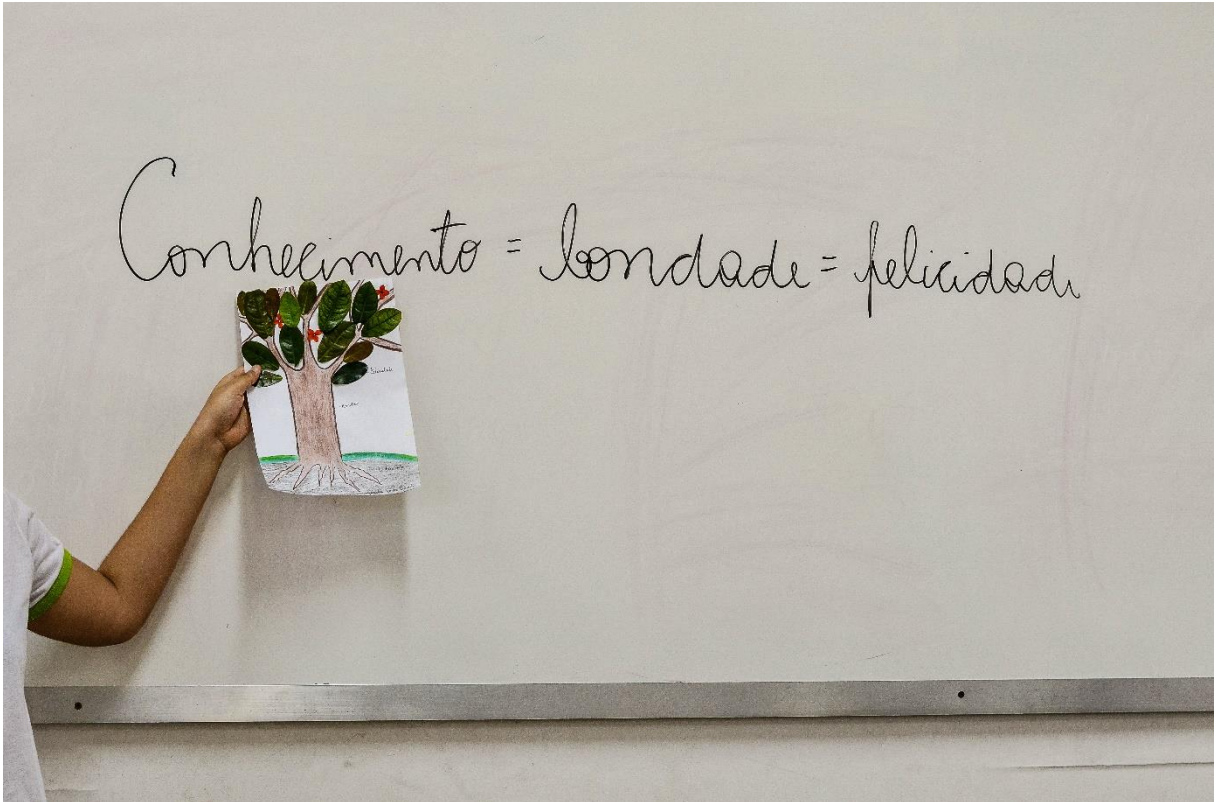 Conhecimento = bondade = felicidade